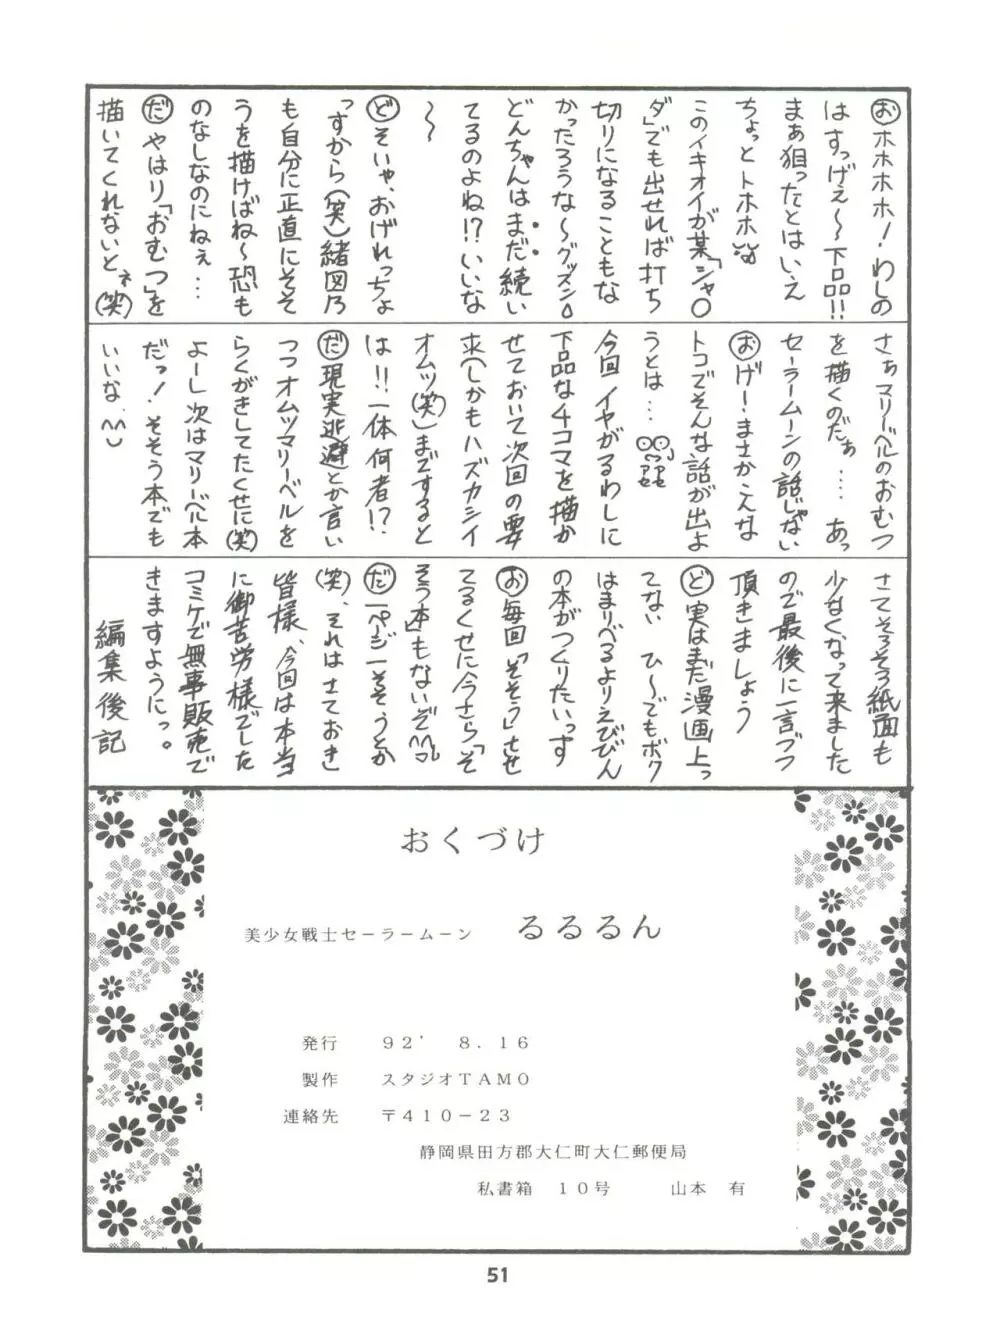 おホホホホ！わしの
はすっげぇ～下品!!
まぁ狙ったとはいえ
ちょっとトホホ
このイキオイが某「シャ〇
ダ」でも出せれば打ち
切りになることもな
かったろうな～グッスン
どんちゃんはまだ続い
てるのよね!?いいな
～～
どそいや、おげれっちょ
っすから(笑)緒図乃
も自分に正直にそそ
うを描けばね～恐も
のなしなのにねぇ…
だやはり「おむつ」を
描いてくれないとネ(笑)
さぁマリーベルのおむつ
を描くのだぁ…あっ
セーラームーンの話じゃない
おげー！まさかこんな
トコでそんな話が出よ
うとは…
今回イヤがるわしに
下品な4コマを描か
せておいて次回の要
求(しかもハズカシイ
オムツ(笑)までするた
は!!一体何者!?
だ現実逃避とか言い
つつオムツマリーベルを
らくがきしてたくせに(笑)
よーし次はマリーベル本
だっ！そそう本でも
いいな.^^
さてそろそろ紙面も
少なくなって来ました
ので最後に一言づつ
頂きましょう
ど実はまだ漫画上っ
てない ひ～でもボク
はまりべるよりえびびん
の本がつくりたいっす
お毎回「そそう」させ
てるくせに今さら「そ
そう本」もないぞ^^
だ一ページーそそうとか
(笑)、それはさておき
皆様、今回は本当
に御苦労様でした
コミケで無事販売で
きますようにっ。
編集後記
おくづけ
美少女戦士セーラームーン るるるん
発行 92' 8.16
製作 スタジオTAMO
連絡先 〒410-23
静岡県田方郡大仁町大仁郵便局
私書箱 10号 山本 有
51